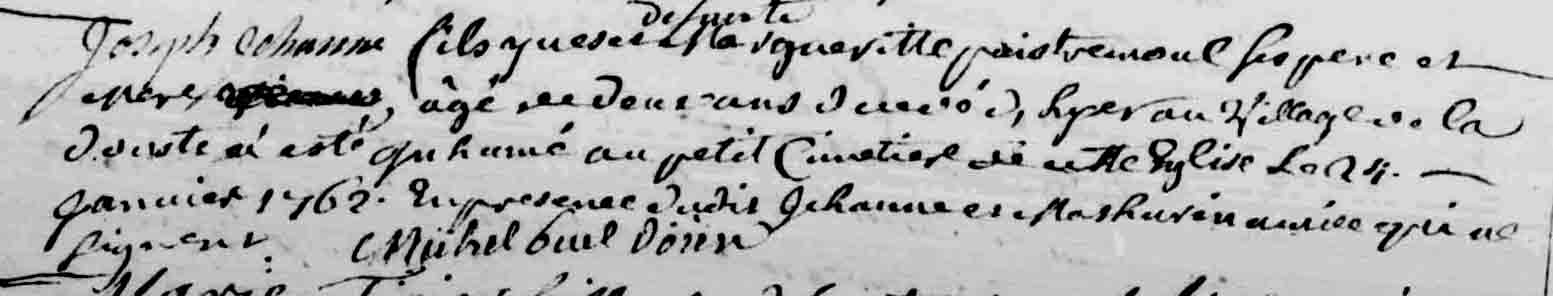 defunte
Joseph Jehanne fils yues et Margueritte paistremoul ses pere et
mere, âgé de deux ans decedé hyer au Village de la
a esté inhumé au petit Cimetiere de cette Eglise Le 24.
Janvier 1762. En presence dudit Jehanne et Mathurin qui ne
signent. Michel
Marie